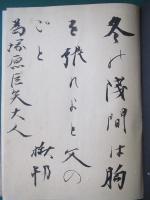 冬の浅間は胸
を張れよと父の
ごと
楸邨
為塚原巨矢大人